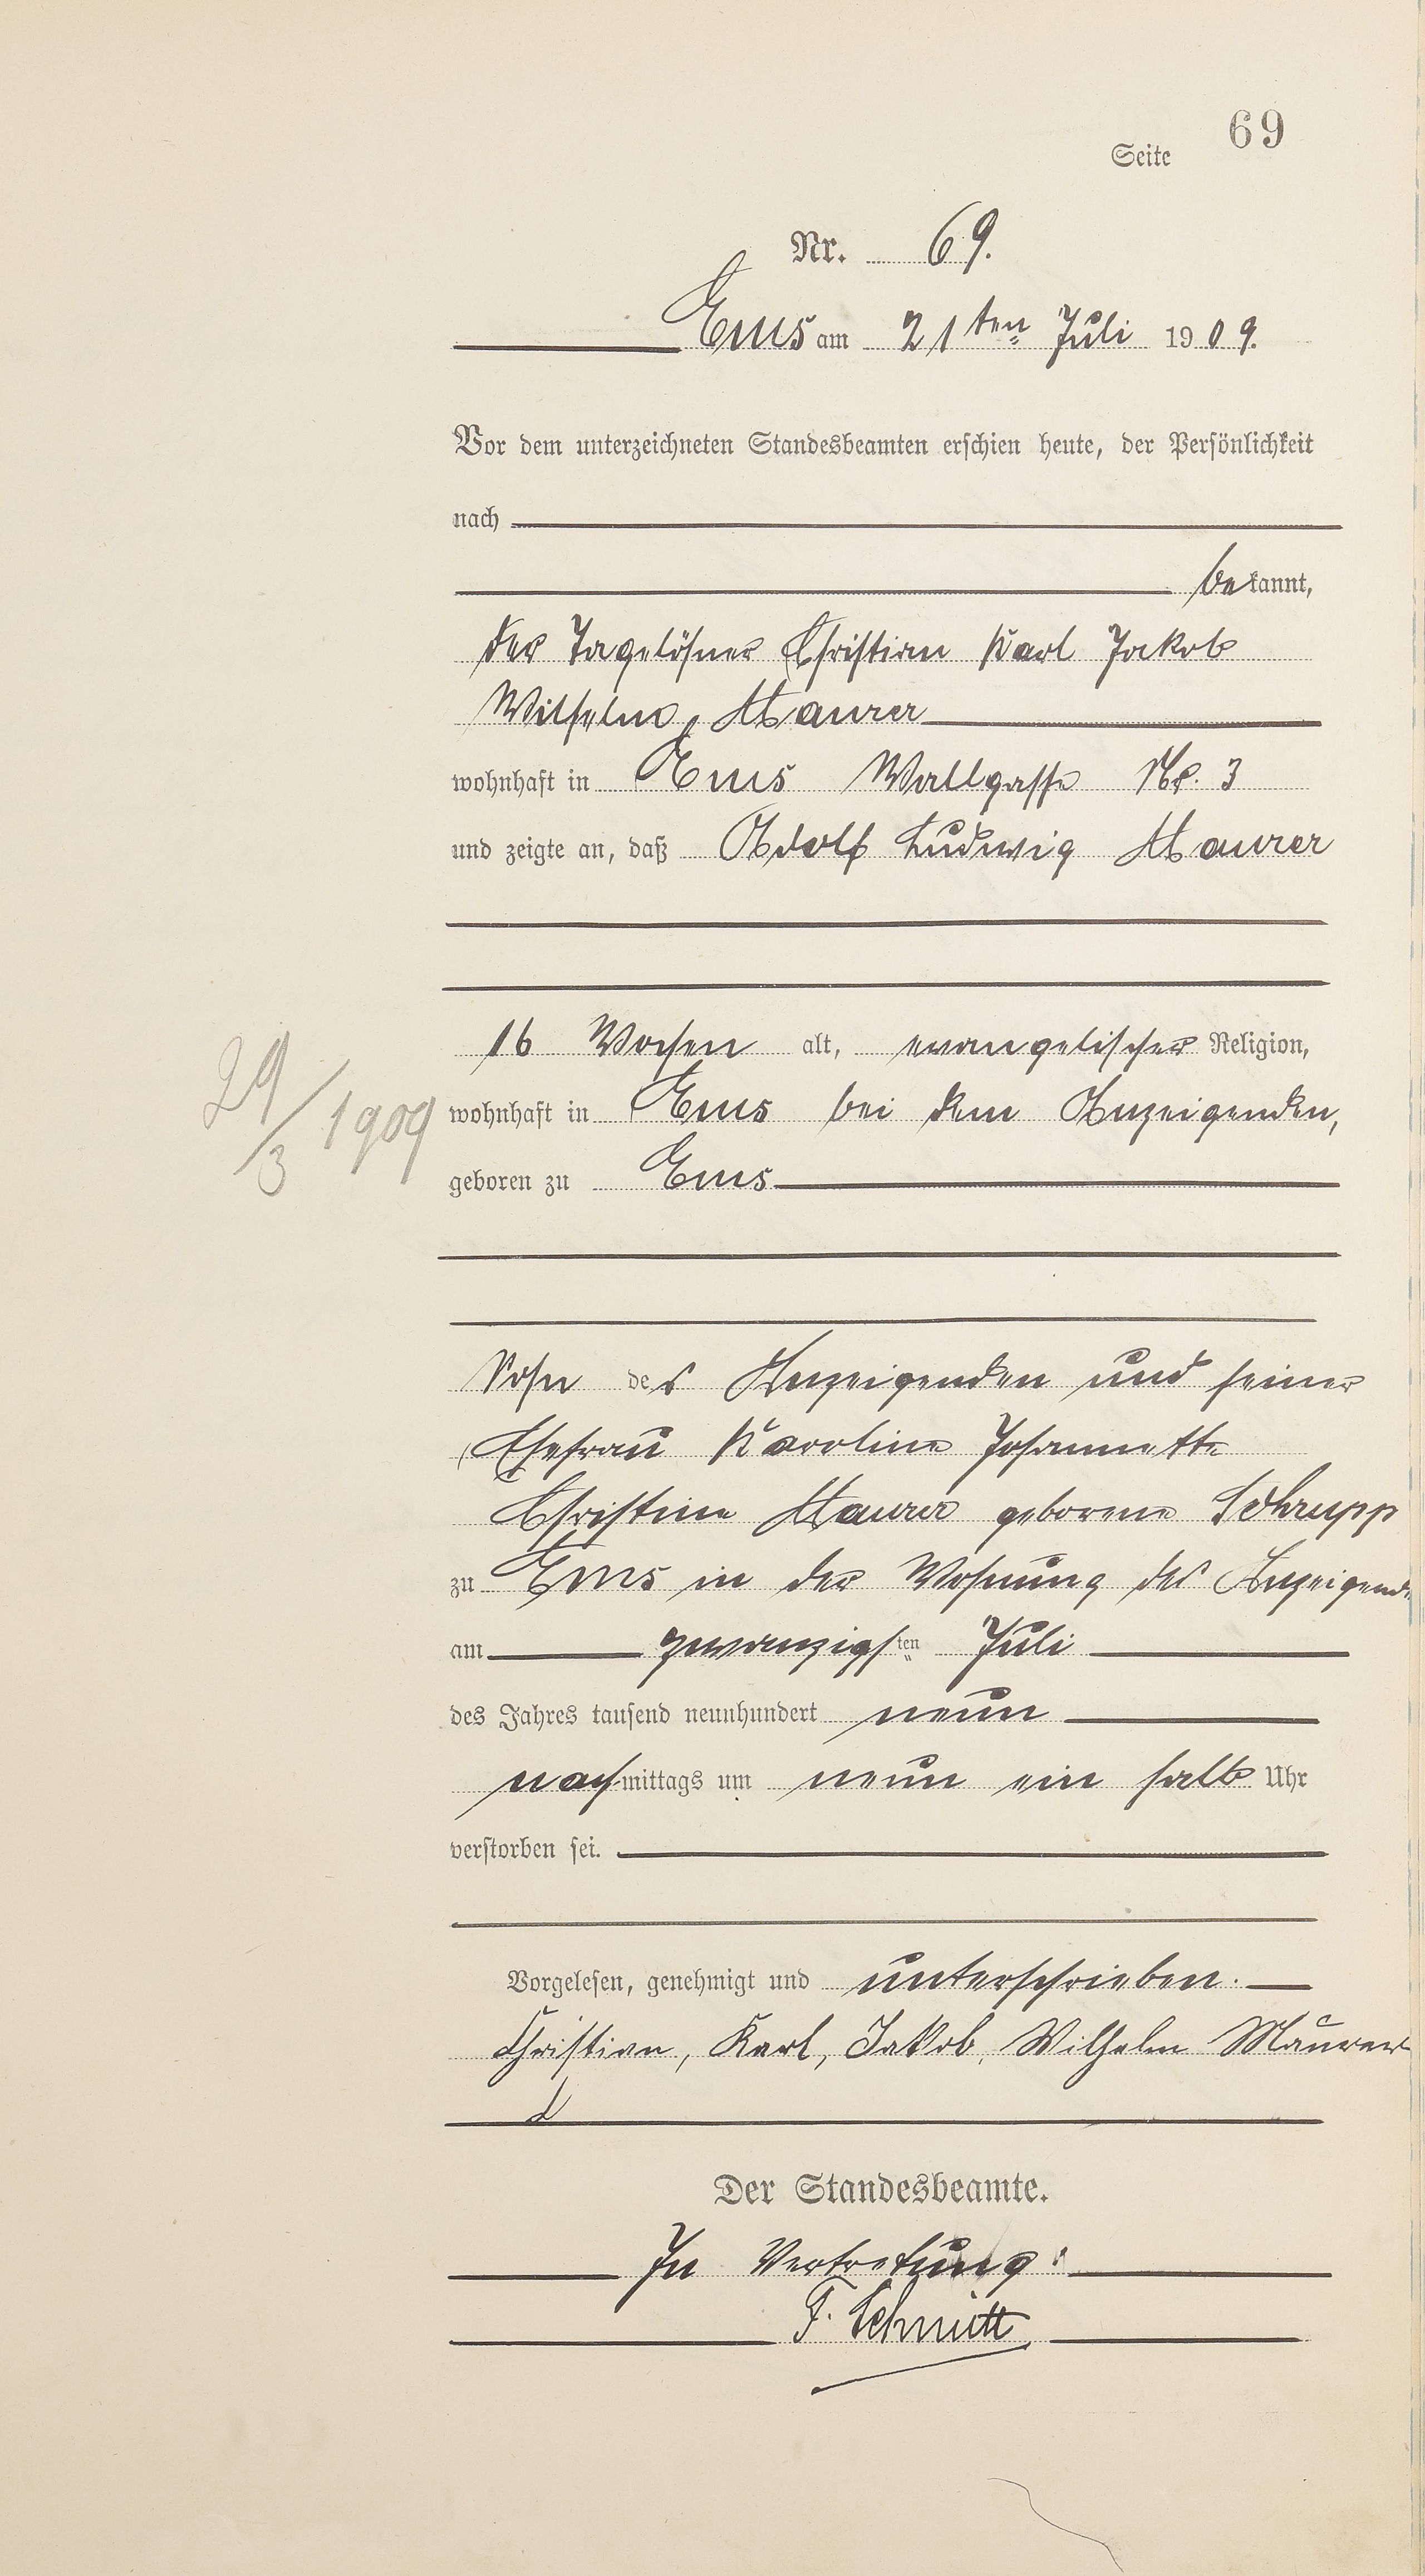 Seite 69
Nr. 69.
Ems am 21ten Juli 1909.
Vor dem unterzeichneten Standesbeamten erschien heute, der Persönlichkeit
nach
bekannt,
der Tagelöhner Christian Karl Jakob
Wilhelm Maurer
wohnhaft in Ems Wallgasse Nr. 3
und zeigte an, daß Adolf Ludwig Maurer
16 Wochen alt, evangelischer Religion,
29/3 1909
wohnhaft in Ems bei dem Anzeigenden,
geboren zu Ems
Sohn des Anzeigenden und seiner
Ehefrau Karoline Johannette
Christine Maurer geborene Schrupp
zu Ems in der Wohnung des Anzeigenden
am zwanzigsten Juli
des Jahres tausend neunhundert neun
nachmittags um neun ein halb Uhr
verstorben sei.
Vorgelesen, genehmigt und unterschrieben.
Christian, Karl, Jakob, Wilhelm Maurer
Der Standesbeamte.
In Vertretung:
F. Schmitt